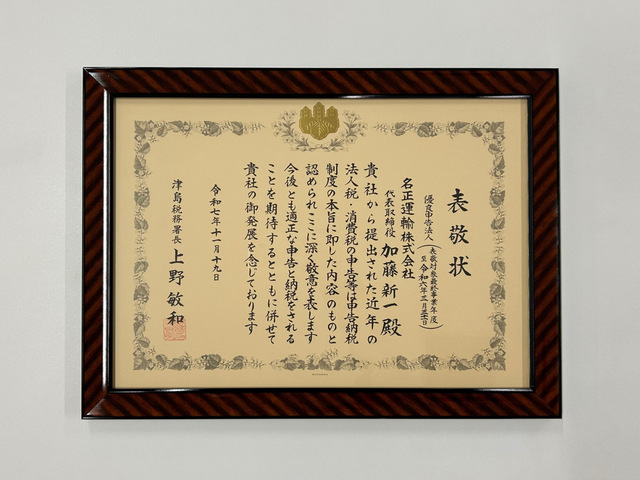 表敬状
優良申告法人
(表敬対象最終事業年度
至 令和六年三月三十一日)
名正運輸株式会社
代表取締役 加藤新一殿
貴社から提出された近年の
法人税・消費税の申告等は申告納税
制度の本旨に即した内容のものと
認められここに深く敬意を表します
今後とも適正な申告と納税をされる
ことを期待するとともに併せて
貴社の御発展を念じております
令和七年十一月十九日
津島税務署長 上野敏和